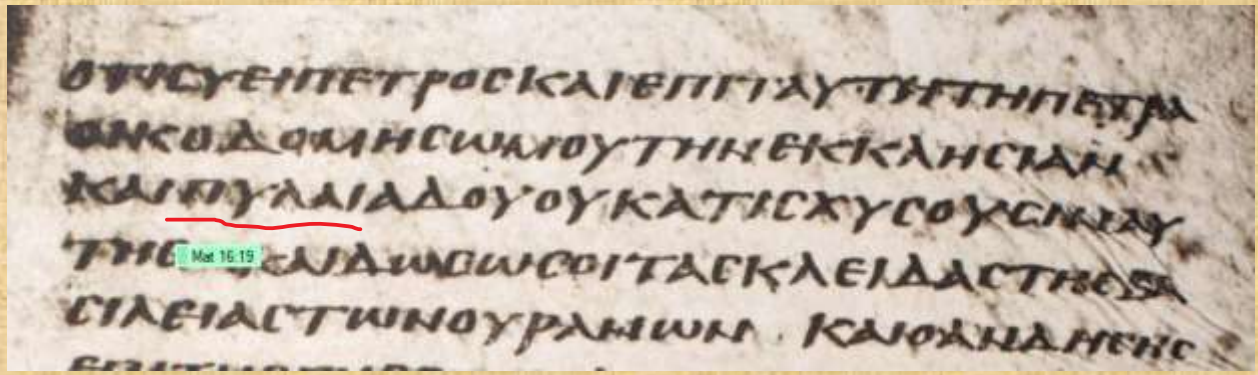 ΟΤΙϹΥΕΙΠΕΤΡΟϹΚΑΙΕΠΙΤΑΥΤΗΤΗΠΕΤΡΑ
ΟΙΚΟΔΟΜΗϹΩΜΟΥΤΗΝΕΚΚΛΗϹΙΑΝ
ΚΑΙΠΥΛΑΙΑΔΟΥΟΥΚΑΤΙϹΧΥϹΟΥϹΙΝΑΥ
ΤΗϹ Mat 16:19 ΚΑΙΔΩϹΩϹΟΙΤΑϹΚΛΕΙΔΑϹΤΗϹΒΑ
ϹΙΛΕΙΑϹΤΩΝΟΥΡΑΝΩΝ ΚΑΙΟΑΝΔΗϹΗϹ